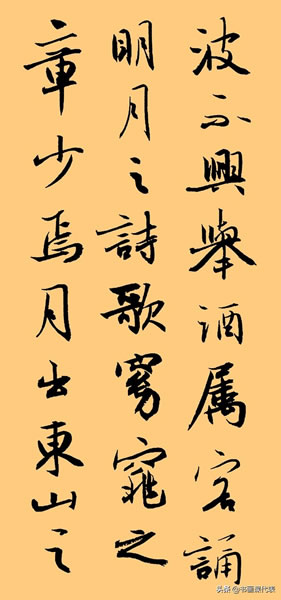 波不興舉酒属客誦
明月之詩歌窈窕之
章少焉月出東山之
头条@书画课代表